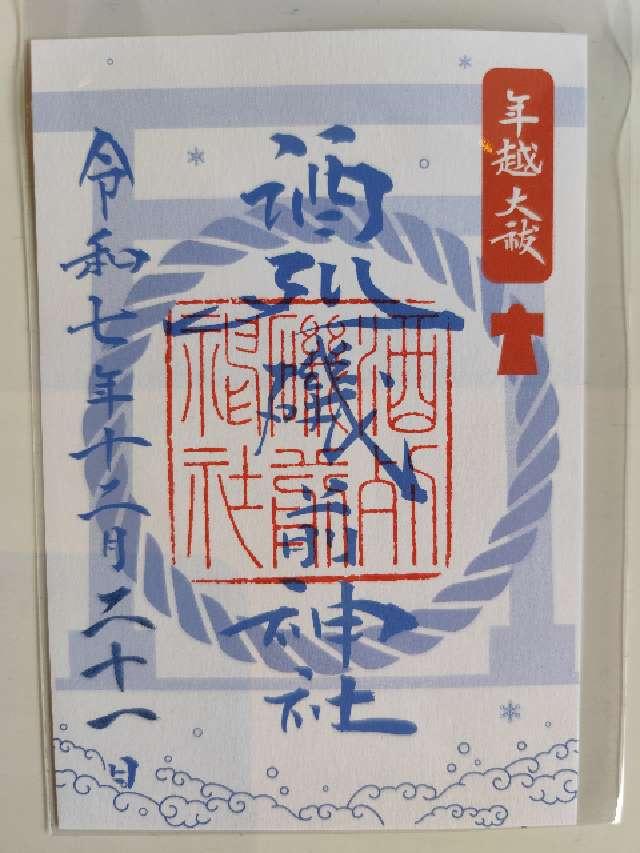 年越大祓
酒列磯前神社
酒列
磯前
神社
令和七年十二月三十一日